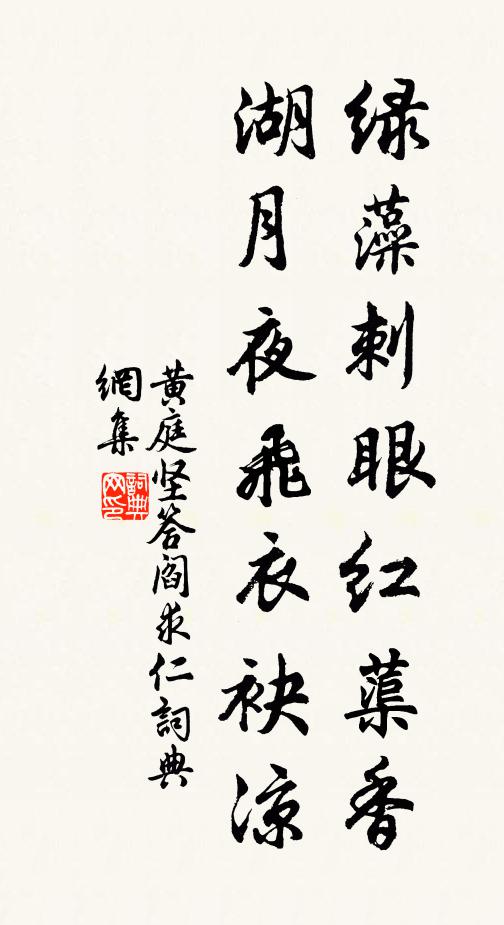 绿藻刺眼红蕖香
湖月夜飛衣袂凉
黄庭坚答阎求仁詞典
網集
詞典
网印